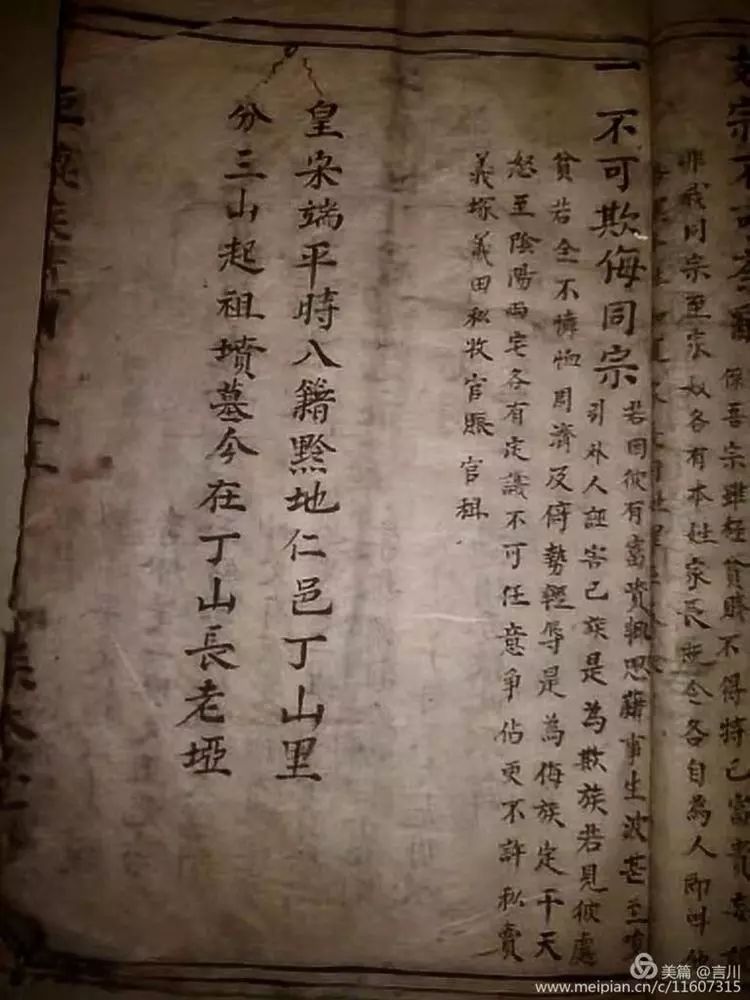 宗不可
係吾宗雖極貧賤不得恃己富貴
非我同宗至宗奴各有本姓家長起今各自為人即叫
一不可欺侮同宗
若因彼有富資輒思藉事生波甚至
引外人誣害己族是為欺族若見彼處
貧若全不憐恤周濟及倚勢輕辱是為侮族定干天
怒至陰陽兩宅各有定議不可任意爭佔更不許私賣
義塚義田私收官賬官租
皇宋端平時八籍黔地仁邑丁山里
分三山起祖墳墓今在丁山長老埡
美篇 @言川
www.meipian.cn/c/11607315